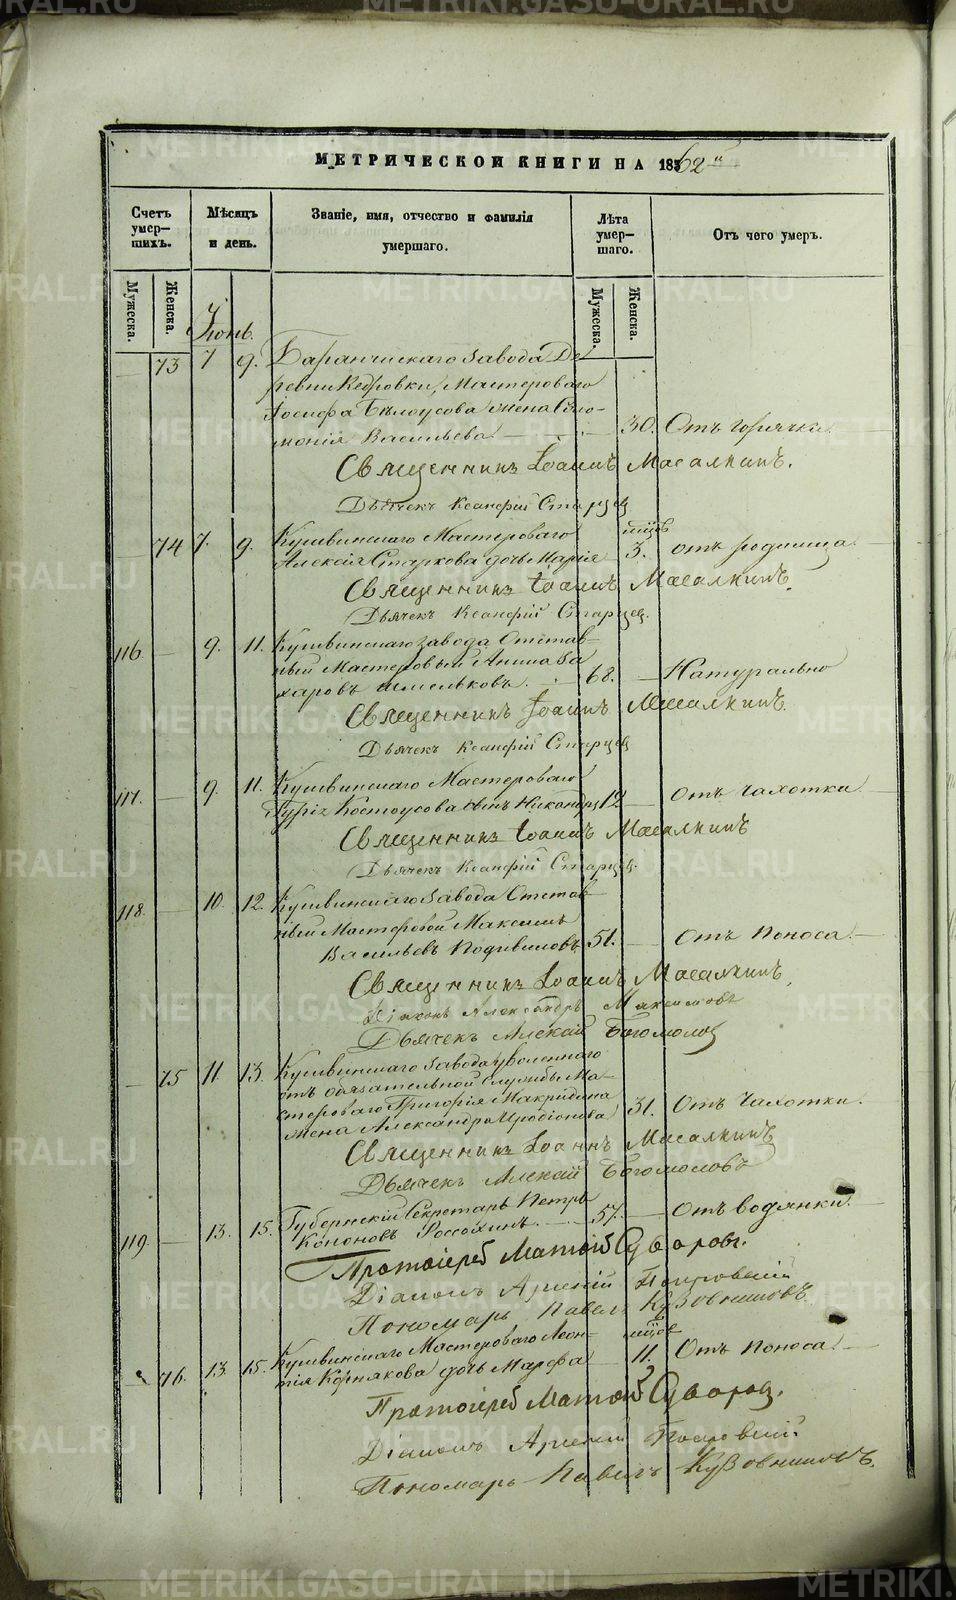 МЕТРИЧЕСКОЙ КНИГИ НА 1862й
Счетъ умер-шихъ.
Мѣсяцъ и день.
Званіе, имя, отчество и фамилія умершаго.
Лѣта умер-шаго.
Отъ чего умеръ.
Мужеска. Женска.
Мужеска. Женска.
Іюнь.
73 7 9. Баранчинскаго Завода Де-
ревни Кедровки, Мастероваго
Іосифа Бѣлоусова жена Соло-
монія Васильева 30. Отъ горячки
Священникъ Іоаннъ Масалкинъ.
Дьячекъ Ксанфій Старцев
74 7. 9. Кушвинскаго Мастероваго мцов
Алексія Старкова дочь Марія 3. отъ родимца
Священникъ Іоаннъ Масалкинъ.
Дьячекъ Ксанфій Старцев.
116 9. 11. Кушвинскаго завода Отстав-
ный Мастеровый Анина За-
харовъ Шмельковъ. 68. Натурально
Священникъ Іоаннъ Масалкинъ.
Дьячекъ Ксанфій Старцев
117. 9. 11. Кушвинскаго Мастероваго
Гурія Костоусова сынъ Никандръ 12 отъ чахотки
Священникъ Іоаннъ Масалкинъ
Дьячекъ Ксанфій Старцев.
118. 10. 12. Кушвинскаго Завода Отстав-
ный Мастеровой Максимъ
Васильевъ Подвиловъ 51. Отъ Поноса.
Священникъ Іоаннъ Масалкинъ.
Діаконъ Александръ Максимовъ
Дьячекъ Алексий Богомолов
75 11 13. Кушвинскаго Завода уволеннаго
отъ обязательной Службы Ма-
стероваго Григорія Макридина
жена Александра Иродіонова 31. Отъ Чахотки.
Священникъ Іоаннъ Масалкинъ
Дьячекъ Алексий Богомоловъ
119. 13. 15. Губернскій Секретарь Петръ
Кононовъ Россохинъ. 57. Отъ водянки.
Протоіерей Матѳій Суворовъ.
Діаконъ Арсеній Покровскій
Пономарь Павелъ Кузовниковъ.
76. 13. 15. Кушвинскаго Мастероваго Леон- мцов
тія Корнякова дочь Марѳа 11. Отъ Поноса
Протоіерей Матѳій Суворов.
Діаконъ Арсеній Покровскій.
Пономарь Павелъ Кузовниковъ.
METRIKI.GASO-URAL.RU